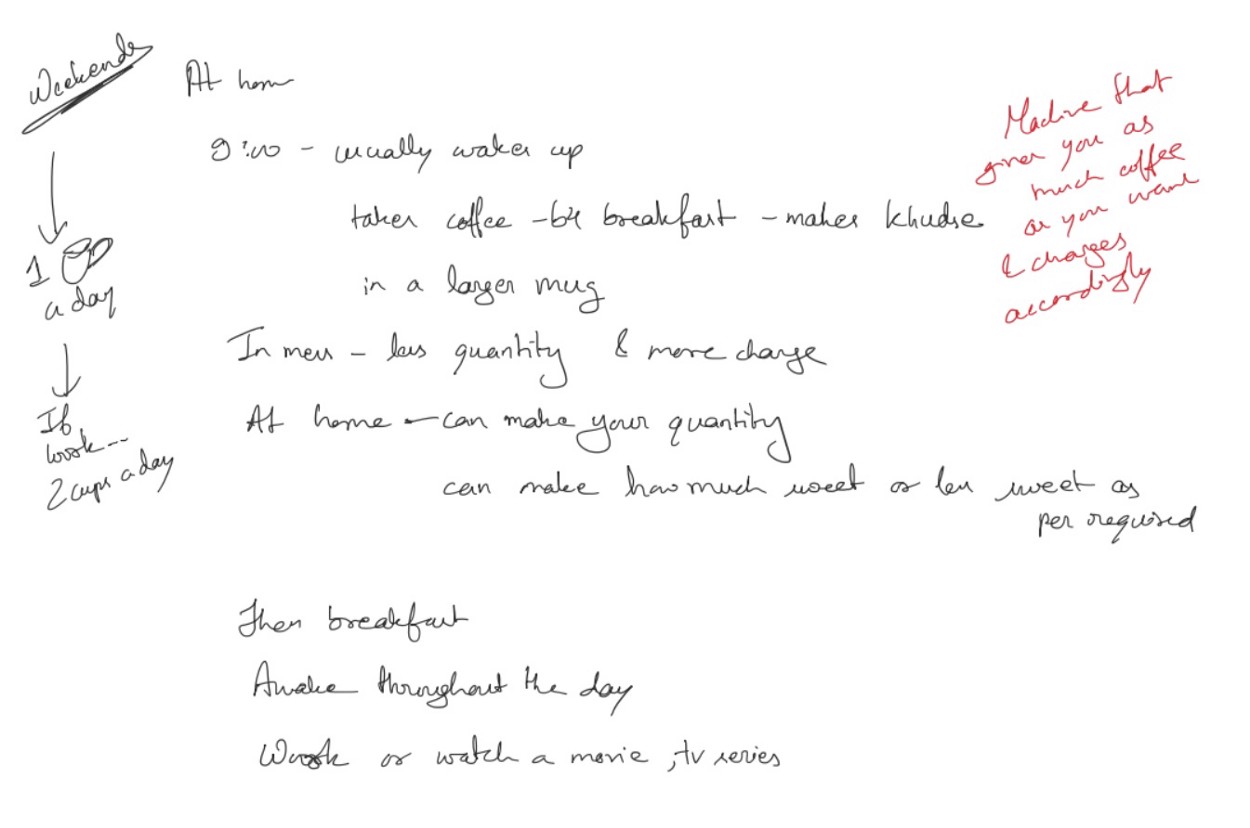 Weekends
At home
9:00 - usually wakes up
takes coffee - b4 breakfast - makes khudse
in a larger mug
In mess - less quantity & more charge
At home - can make your quantity
can make how much sweet or less sweet as
per required
Then breakfast
Awake throughout the day
Work or watch a movie, tv series
1
a day
If
work--
2 cups a day
Machine that
gives you as
much coffee
as you want
& charges
accordingly